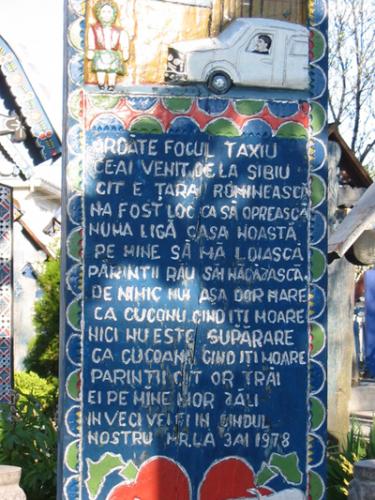 ARDĂTE FOCUL TAXIU
CEAI VENIT DE LA SIBIU
CIT E ȚARA ROMINEASCĂ
NA FOST LOC CA SĂ OPREASCĂ
NUMA LIGĂ CASA NOASTĂ
PE MINE SĂ MĂ LOIASCĂ
PĂRINTII RĂU SĂI NĂCĂZASCĂ
DE NIMIC NUI AȘA DOR MARE
CA CUCONU CIND ITI MOARE
NICI NU ESTE SUPĂRARE
CA CUCOANU CIND ITI MOARE
PARINTII CIT OR TRĂI
EI PE MINE MOR JĂLI
IN VECI VEI FI IN GINDUL
NOSTRU MR. LA 3 AI 1978